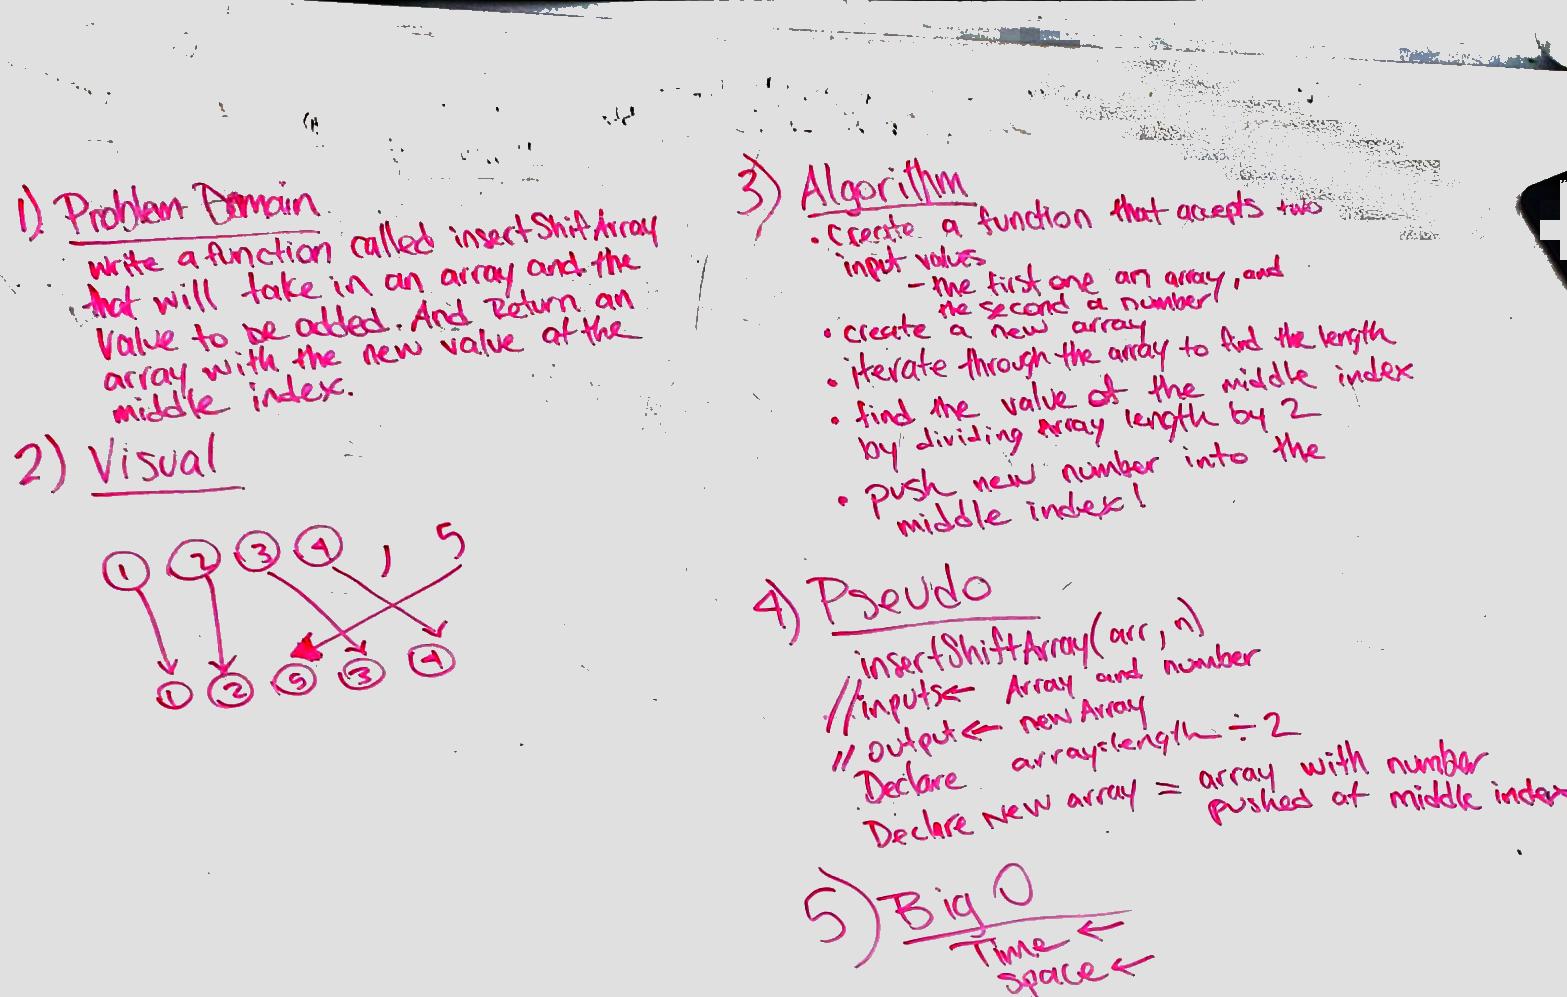 1) Problem Domain
write a function called insertShiftArray
that will take in an array and the
value to be added. And Return an
array with the new value at the
middle index.
2) Visual
1 2 3 4 , 5
1 2 5 3 4
3) Algorithm
• create a function that accepts two
input values
- the first one an array, and
the second a number
• create a new array
• iterate through the array to find the length
• find the value of the middle index
by dividing Array length by 2
• push new number into the
middle index!
4) Pseudo
insertShiftArray(arr, n)
// inputs ← Array and number
// output ← new Array
Declare array.length ÷ 2
Declare New array = array with number
pushed at middle index
5) Big O
Time ←
space ←